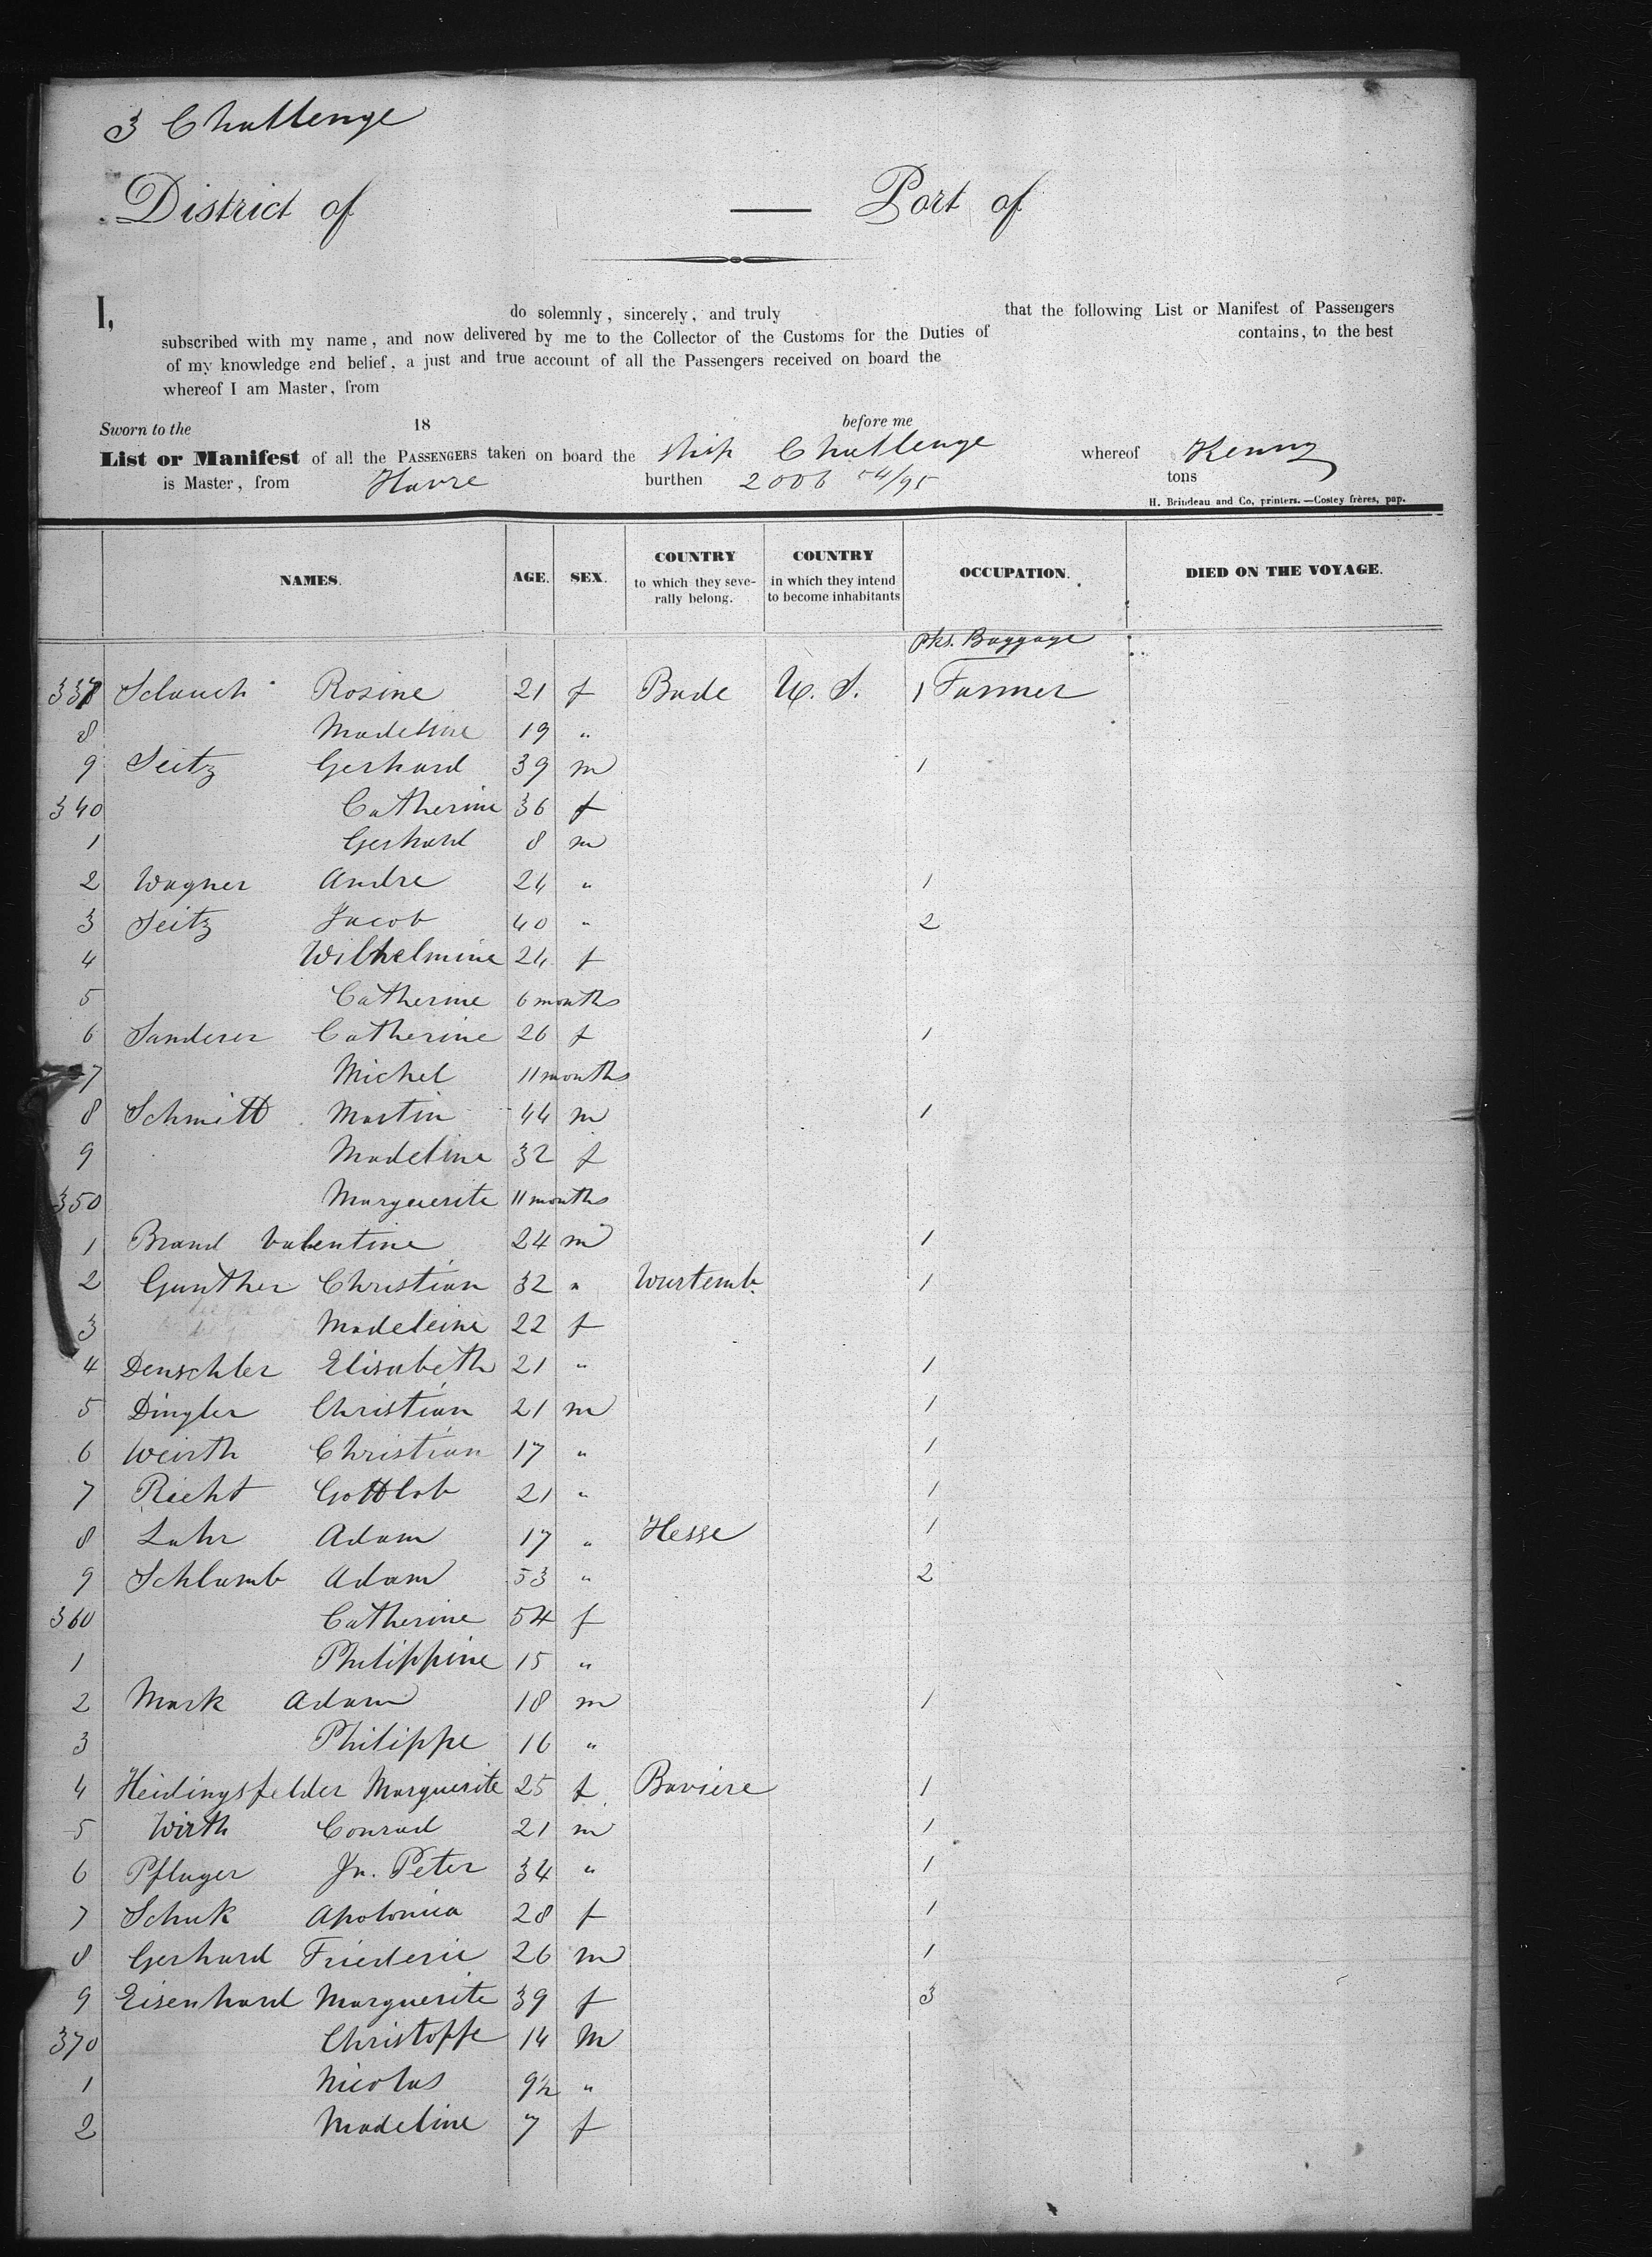 3 Challenge
District of — Port of
I, do solemnly, sincerely, and truly that the following List or Manifest of Passengers
subscribed with my name, and now delivered by me to the Collector of the Customs for the Duties of contains, to the best
of my knowledge and belief, a just and true account of all the Passengers received on board the
whereof I am Master, from
Sworn to the 18 before me
List or Manifest of all the PASSENGERS taken on board the ship Challenge whereof Kenny
is Master, from Havre burthen 2006 54/95 tons
H. Brindeau and Co, printers. — Costey frères, pap.
NAMES. AGE. SEX. COUNTRY to which they severally belong. COUNTRY in which they intend to become inhabitants OCCUPATION. DIED ON THE VOYAGE.
pks. Baggage
337 Sclauch Rosine 21 f Bade U. S. 1 Farmer
8 Madeline 19 "
9 Seitz Gerhard 39 m 1
340 Catherine 36 f
1 Gerhard 8 m
2 Wagner Andre 24 " 1
3 Seitz Jacob 40 " 2
4 Wilhelmine 24 f
5 Catherine 6 months
6 Sanderer Catherine 26 f 1
7 Michel 11 months
8 Schmitt Martin 44 m 1
9 Madeline 32 f
350 Marguerite 11 months
1 Brand Valentine 24 m 1
2 Gunther Christian 32 " Wurtemb. 1
3 Madeleine 22 f
4 Denschler Elisabeth 21 " 1
5 Dingler Christian 21 m 1
6 Weirth Christian 17 " 1
7 Riecht Gottlob 21 " 1
8 Lahr Adam 17 " Hesse 1
9 Schlamb Adam 53 " 2
360 Catherine 54 f
1 Philippine 15 "
2 Mark Adam 18 m 1
3 Philippe 16 "
4 Heidingsfelder Marguerite 25 f Baviere 1
5 Wirth Conrad 21 m 1
6 Pfluger Jn. Peter 34 " 1
7 Schuk Apolonia 28 f 1
8 Gerhard Friederic 26 m 1
9 Eisenhard Marguerite 39 f 3
370 Christoffe 14 m
1 Nicolas 9½ "
2 Madeline 7 f